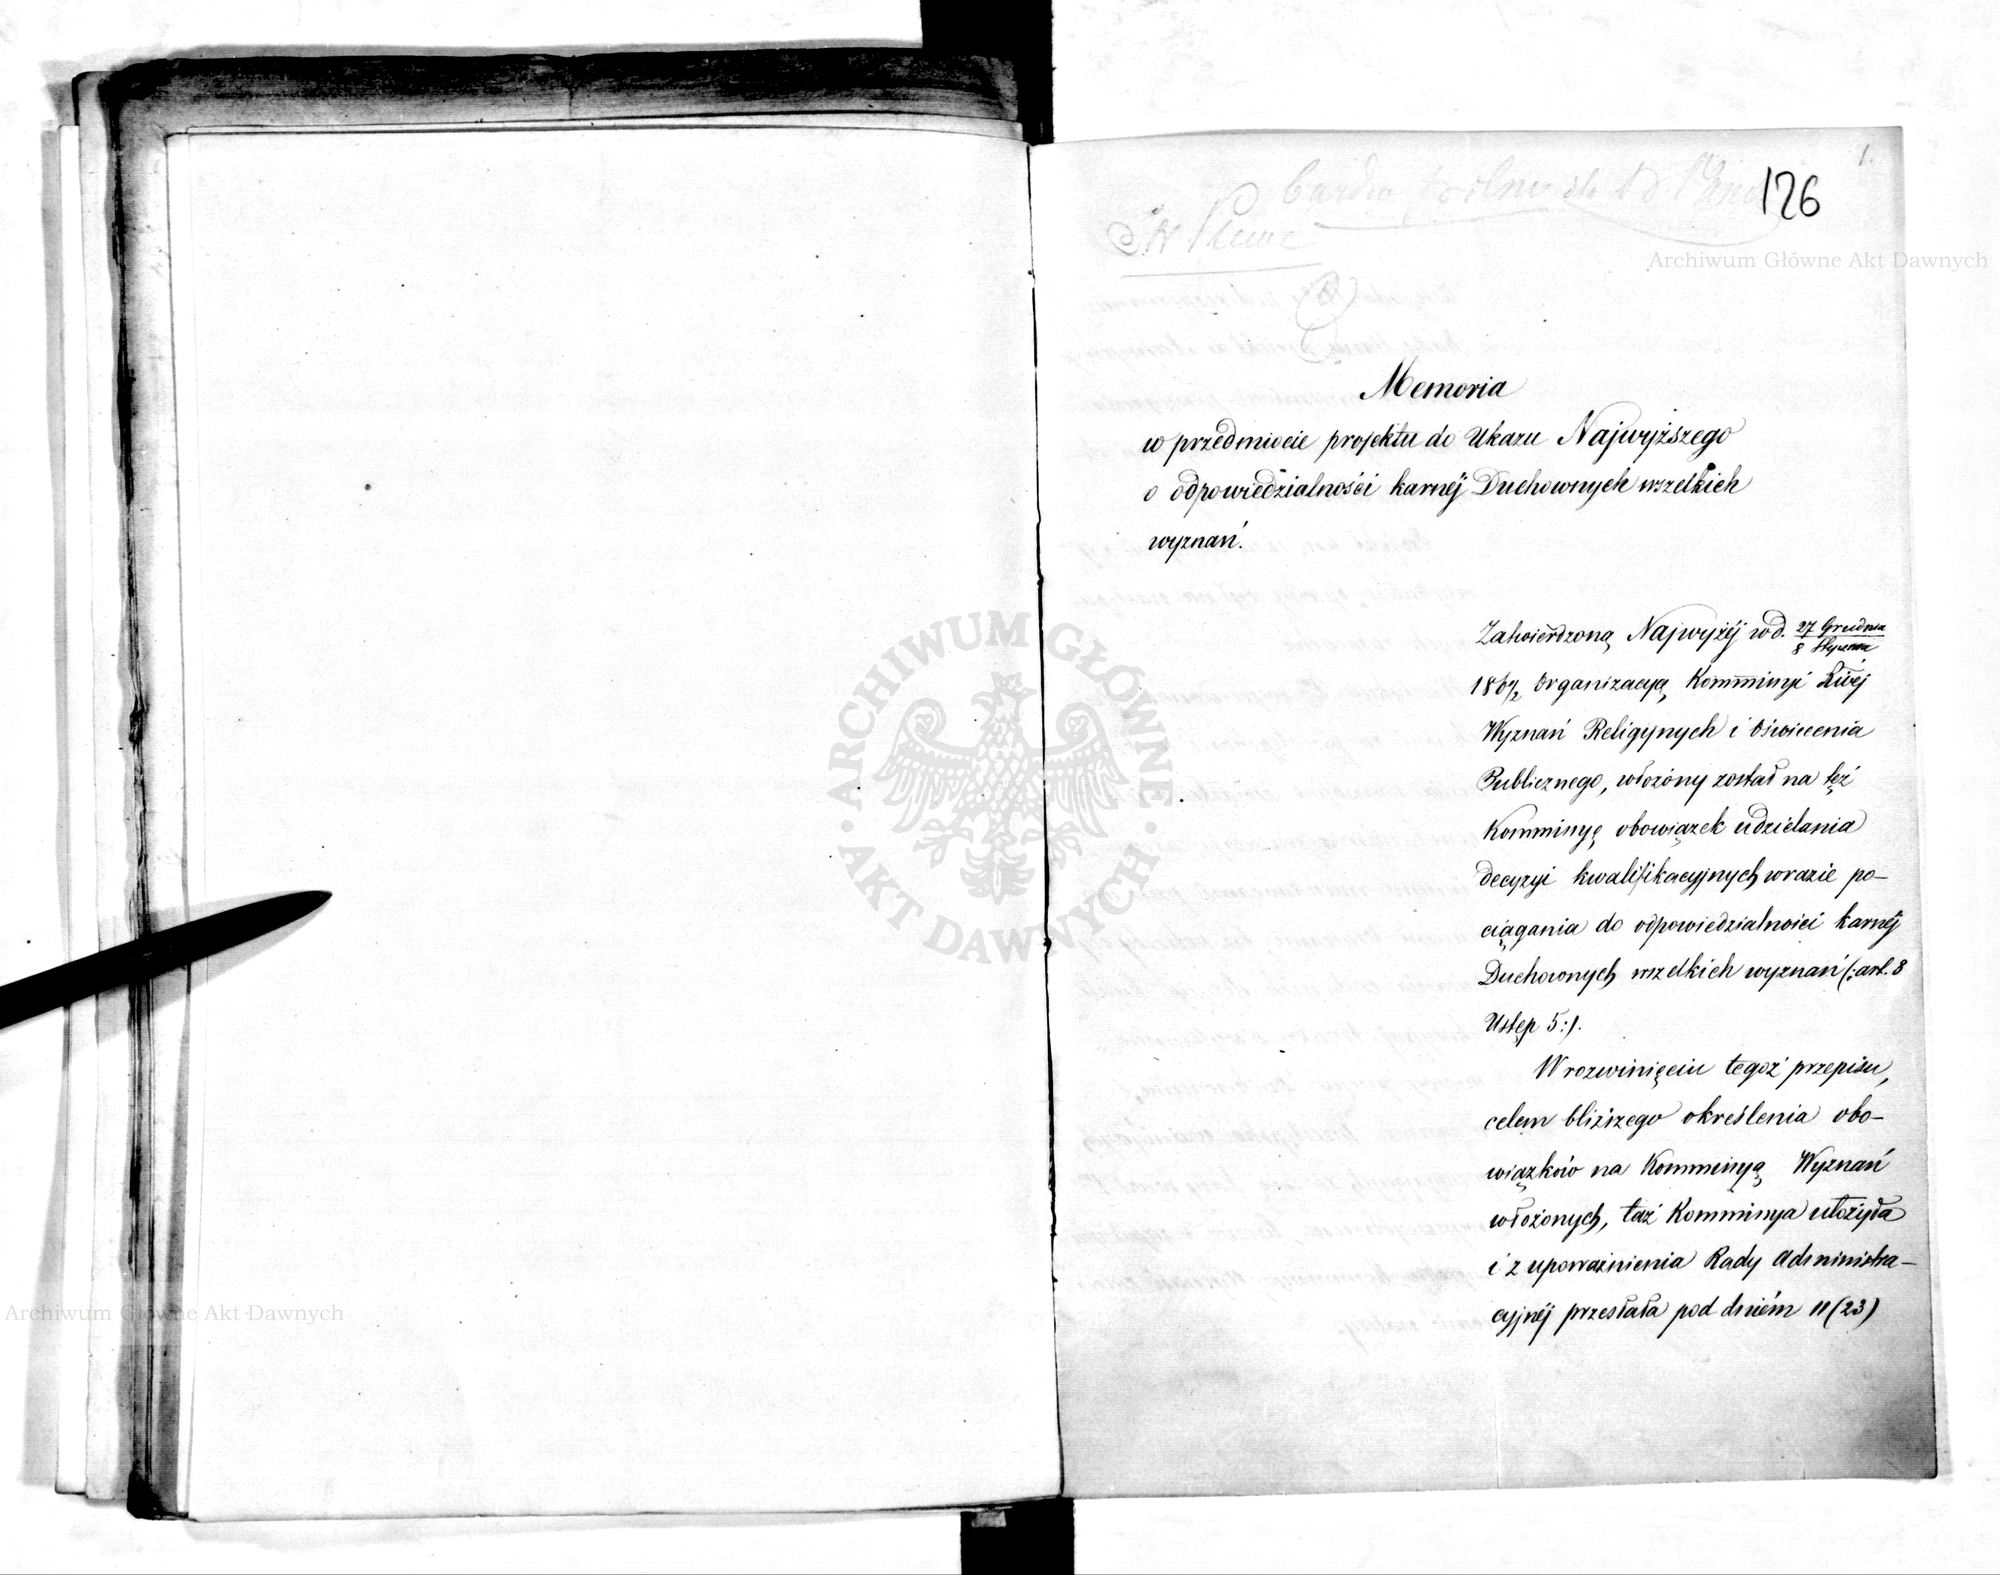 1.
126
Memoria
w przedmiocie projektu do Ukazu Najwyższego
o odpowiedzialności karnéj Duchownych wszelkich
wyznań.
Zatwierdzoną Najwyżéj w d. 27 Grudnia / 8 Stycznia
186½ Organizacyą Kommissyi Rząéj
Wyznań Religijnych i Oświecenia
Publicznego, włożony został na też
Kommissyę obowiązek udzielania
decyzyi kwalifikacyjnych w razie po-
ciągania do odpowiedzialności karnéj
Duchownych wszelkich wyznań (: art. 8
Ustęp 5:).
W rozwinięciu tegoż przepisu,
celem bliższego określenia obo-
wiązków na Kommissyą Wyznań
włożonych, taż Kommissya ułożyła
i z upoważnienia Rady Administra-
cyjnéj przesłała pod dniém 11 (23)
Archiwum Główne Akt Dawnych
ARCHIWUM GŁÓWNE · AKT DAWNYCH ·
Archiwum Główne Akt Dawnych